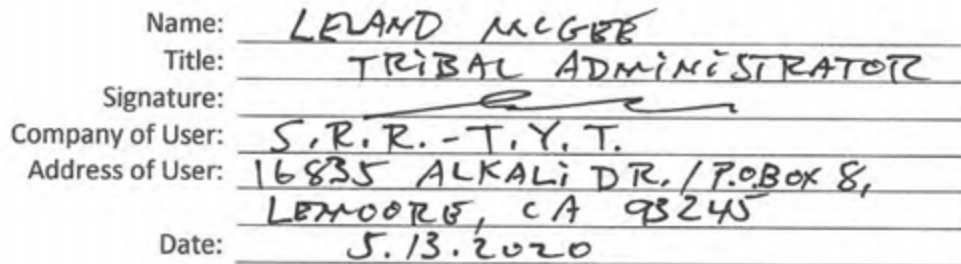 Name: LELAND McGEE
Title: TRiBAL ADMiNiSTRATOR
Signature:
Company of User: S.R.R.-T.Y.T.
Address of User: 16835 ALKALi DR./P.O.BOX 8,
LEMOORE, CA 93245
Date: 5.13.2020